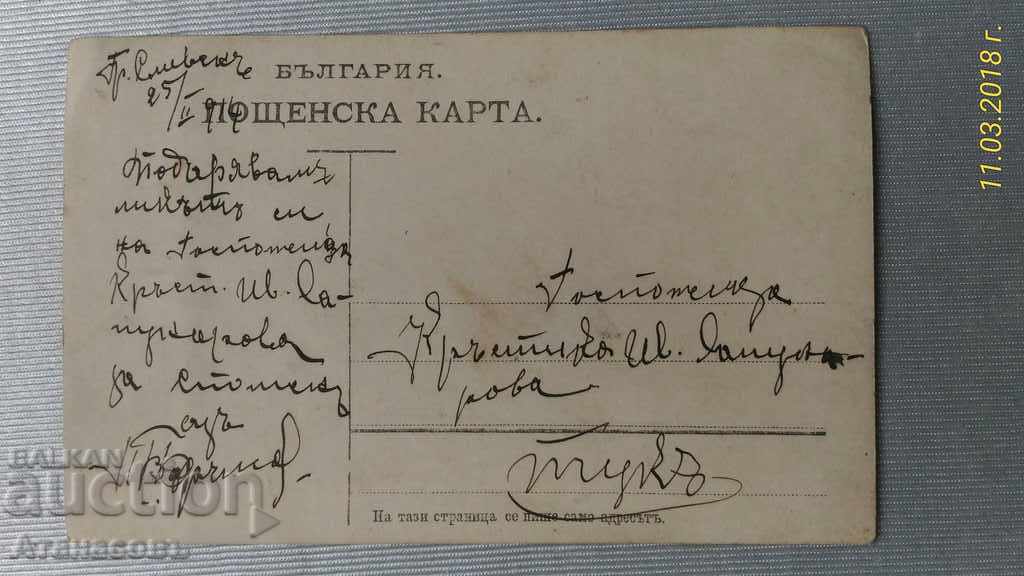 Гр. Сливенъ
25/II 914
БЪЛГАРИЯ.
ПОЩЕНСКА КАРТА.
Подарявамъ
ликътъ си
на Госпожица
Кръст. Ив. Са-
пунарова
за споменъ
отъ
Госпожица
Кръстина Ив. Сапуна-
рова
тукъ
На тази страница се пише само адресътъ.
11.03.2018 г.
BALKAN
auction
Атанасовъ